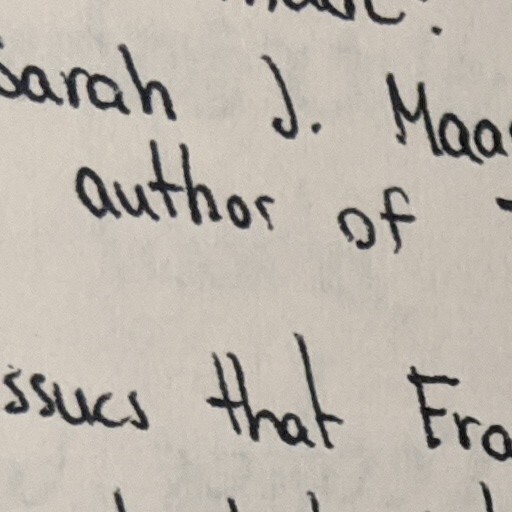 Sarah J. Maas
author of
issues that Fra